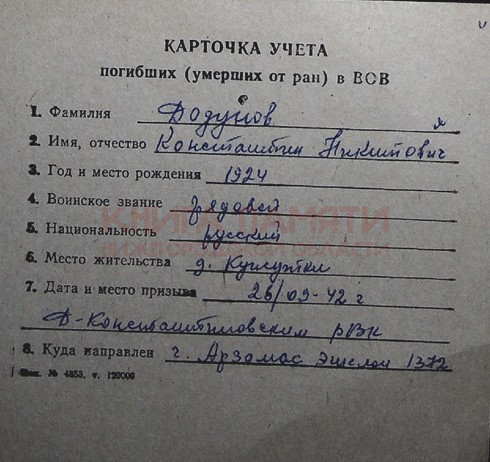 КАРТОЧКА УЧЕТА
погибших (умерших от ран) в ВОВ
1. Фамилия Додунов
2. Имя, отчество Константин Никитович
3. Год и место рождения 1924
4. Воинское звание рядовой
5. Национальность русский
КНИГА ПАМЯТИ
НИЖЕГОРОДСКОЙ ОБЛАСТИ
6. Место жительства д. Кужутки
7. Дата и место призыва 26/09-42 г
Д-Константиновским РВК
8. Куда направлен г. Арзамас эшелон 1372
Зак. № 4853. т. 120000